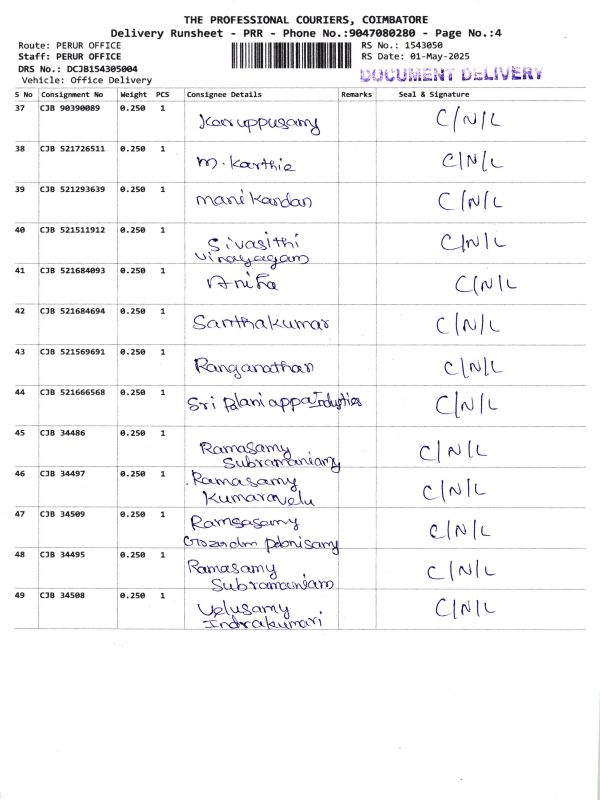 THE PROFESSIONAL COURIERS, COIMBATORE
Delivery Runsheet - PRR - Phone No.:9047080280 - Page No.:4
Route: PERUR OFFICE RS No.: 1543050
Staff: PERUR OFFICE RS Date: 01-May-2025
DRS No.: DCJB154305004 DOCUMENT DELIVERY
Vehicle: Office Delivery
S No Consignment No Weight PCS Consignee Details Remarks Seal & Signature
37 CJB 90390089 0.250 1 Karuppusamy C/N/L
38 CJB 521726511 0.250 1 M. Karthie C/N/L
39 CJB 521293639 0.250 1 Manikandan C/N/L
40 CJB 521511912 0.250 1 Sivasithi C/N/L
Vinayagam
41 CJB 521684093 0.250 1 Anitha C/N/L
42 CJB 521684694 0.250 1 Santhakumar C/N/L
43 CJB 521569691 0.250 1 Ranganathan C/N/L
44 CJB 521666568 0.250 1 Sri Palaniappa Industries C/N/L
45 CJB 34486 0.250 1 Ramasamy C/N/L
Subramaniamy
46 CJB 34497 0.250 1 Ramasamy C/N/L
Kumaravelu
47 CJB 34509 0.250 1 Ramsasamy C/N/L
Palanisamy
48 CJB 34495 0.250 1 Ramasamy C/N/L
Subramaniam
49 CJB 34508 0.250 1 Velusamy C/N/L
Indrakumari